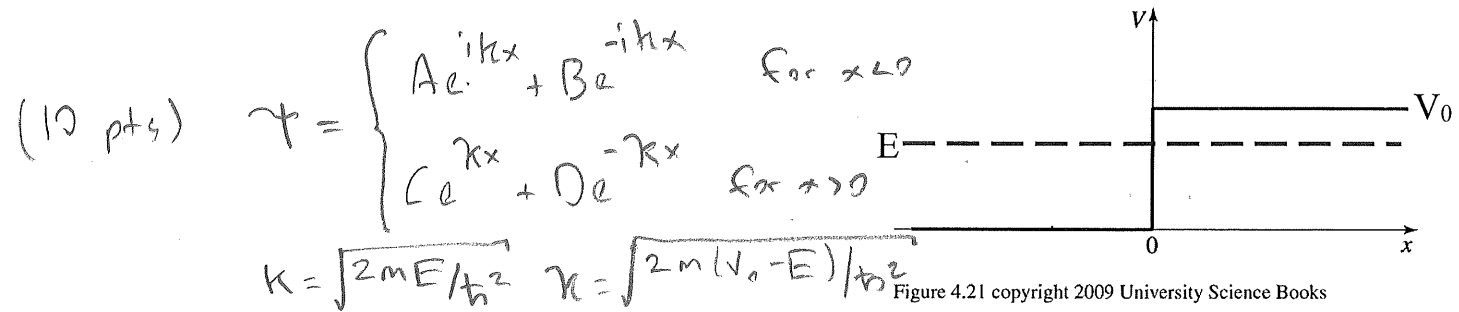 (10 pts) ψ = { Ae^{ikx} + Be^{-ikx} for x<0
Ce^{κx} + De^{-κx} for x>0
k = √(2mE/ħ²) κ = √(2m(V₀-E)/ħ²)
V
V₀
E
0
x
Figure 4.21 copyright 2009 University Science Books